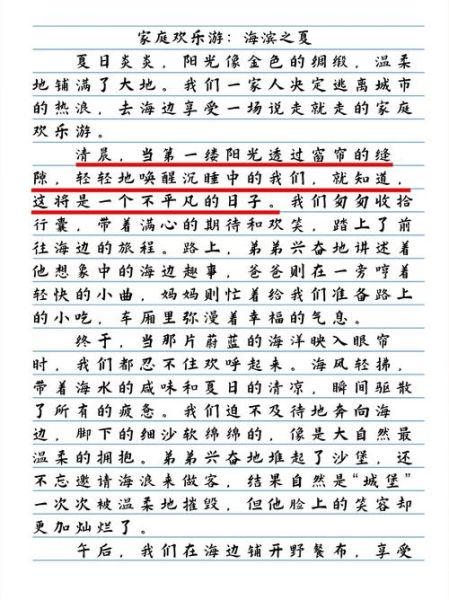 家庭欢乐游：海滨之夏
夏日炎炎，阳光像金色的绸缎，温柔
地铺满了大地。我们一家人决定逃离城市
的热浪，去海边享受一场说走就走的家庭
欢乐游。
清晨，当第一缕阳光透过窗帘的缝
隙，轻轻地唤醒沉睡中的我们，就知道，
这将是一个不平凡的日子。我们匆匆收拾
行囊，带着满心的期待和欢笑，踏上了前
往海边的旅程。路上，弟弟兴奋地讲述着
他想象中的海边趣事，爸爸则在一旁哼着
轻快的小曲，妈妈则忙着给我们准备路上
的小吃，车厢里弥漫着幸福的气息。
终于，当那片蔚蓝的海洋映入眼帘
时，我们都忍不住欢呼起来。海风轻拂，
带着海水的咸味和夏日的清凉，瞬间驱散
了所有的疲惫。我们迫不及待地奔向海
边，脚下的细沙软绵绵的，像是大自然最
温柔的拥抱。弟弟兴奋地堆起了沙堡，还
不忘邀请海浪来做客，结果自然是“城堡”
一次次被温柔地摧毁，但他脸上的笑容却
更加灿烂了。
午后，我们在海边铺开野餐布，享受